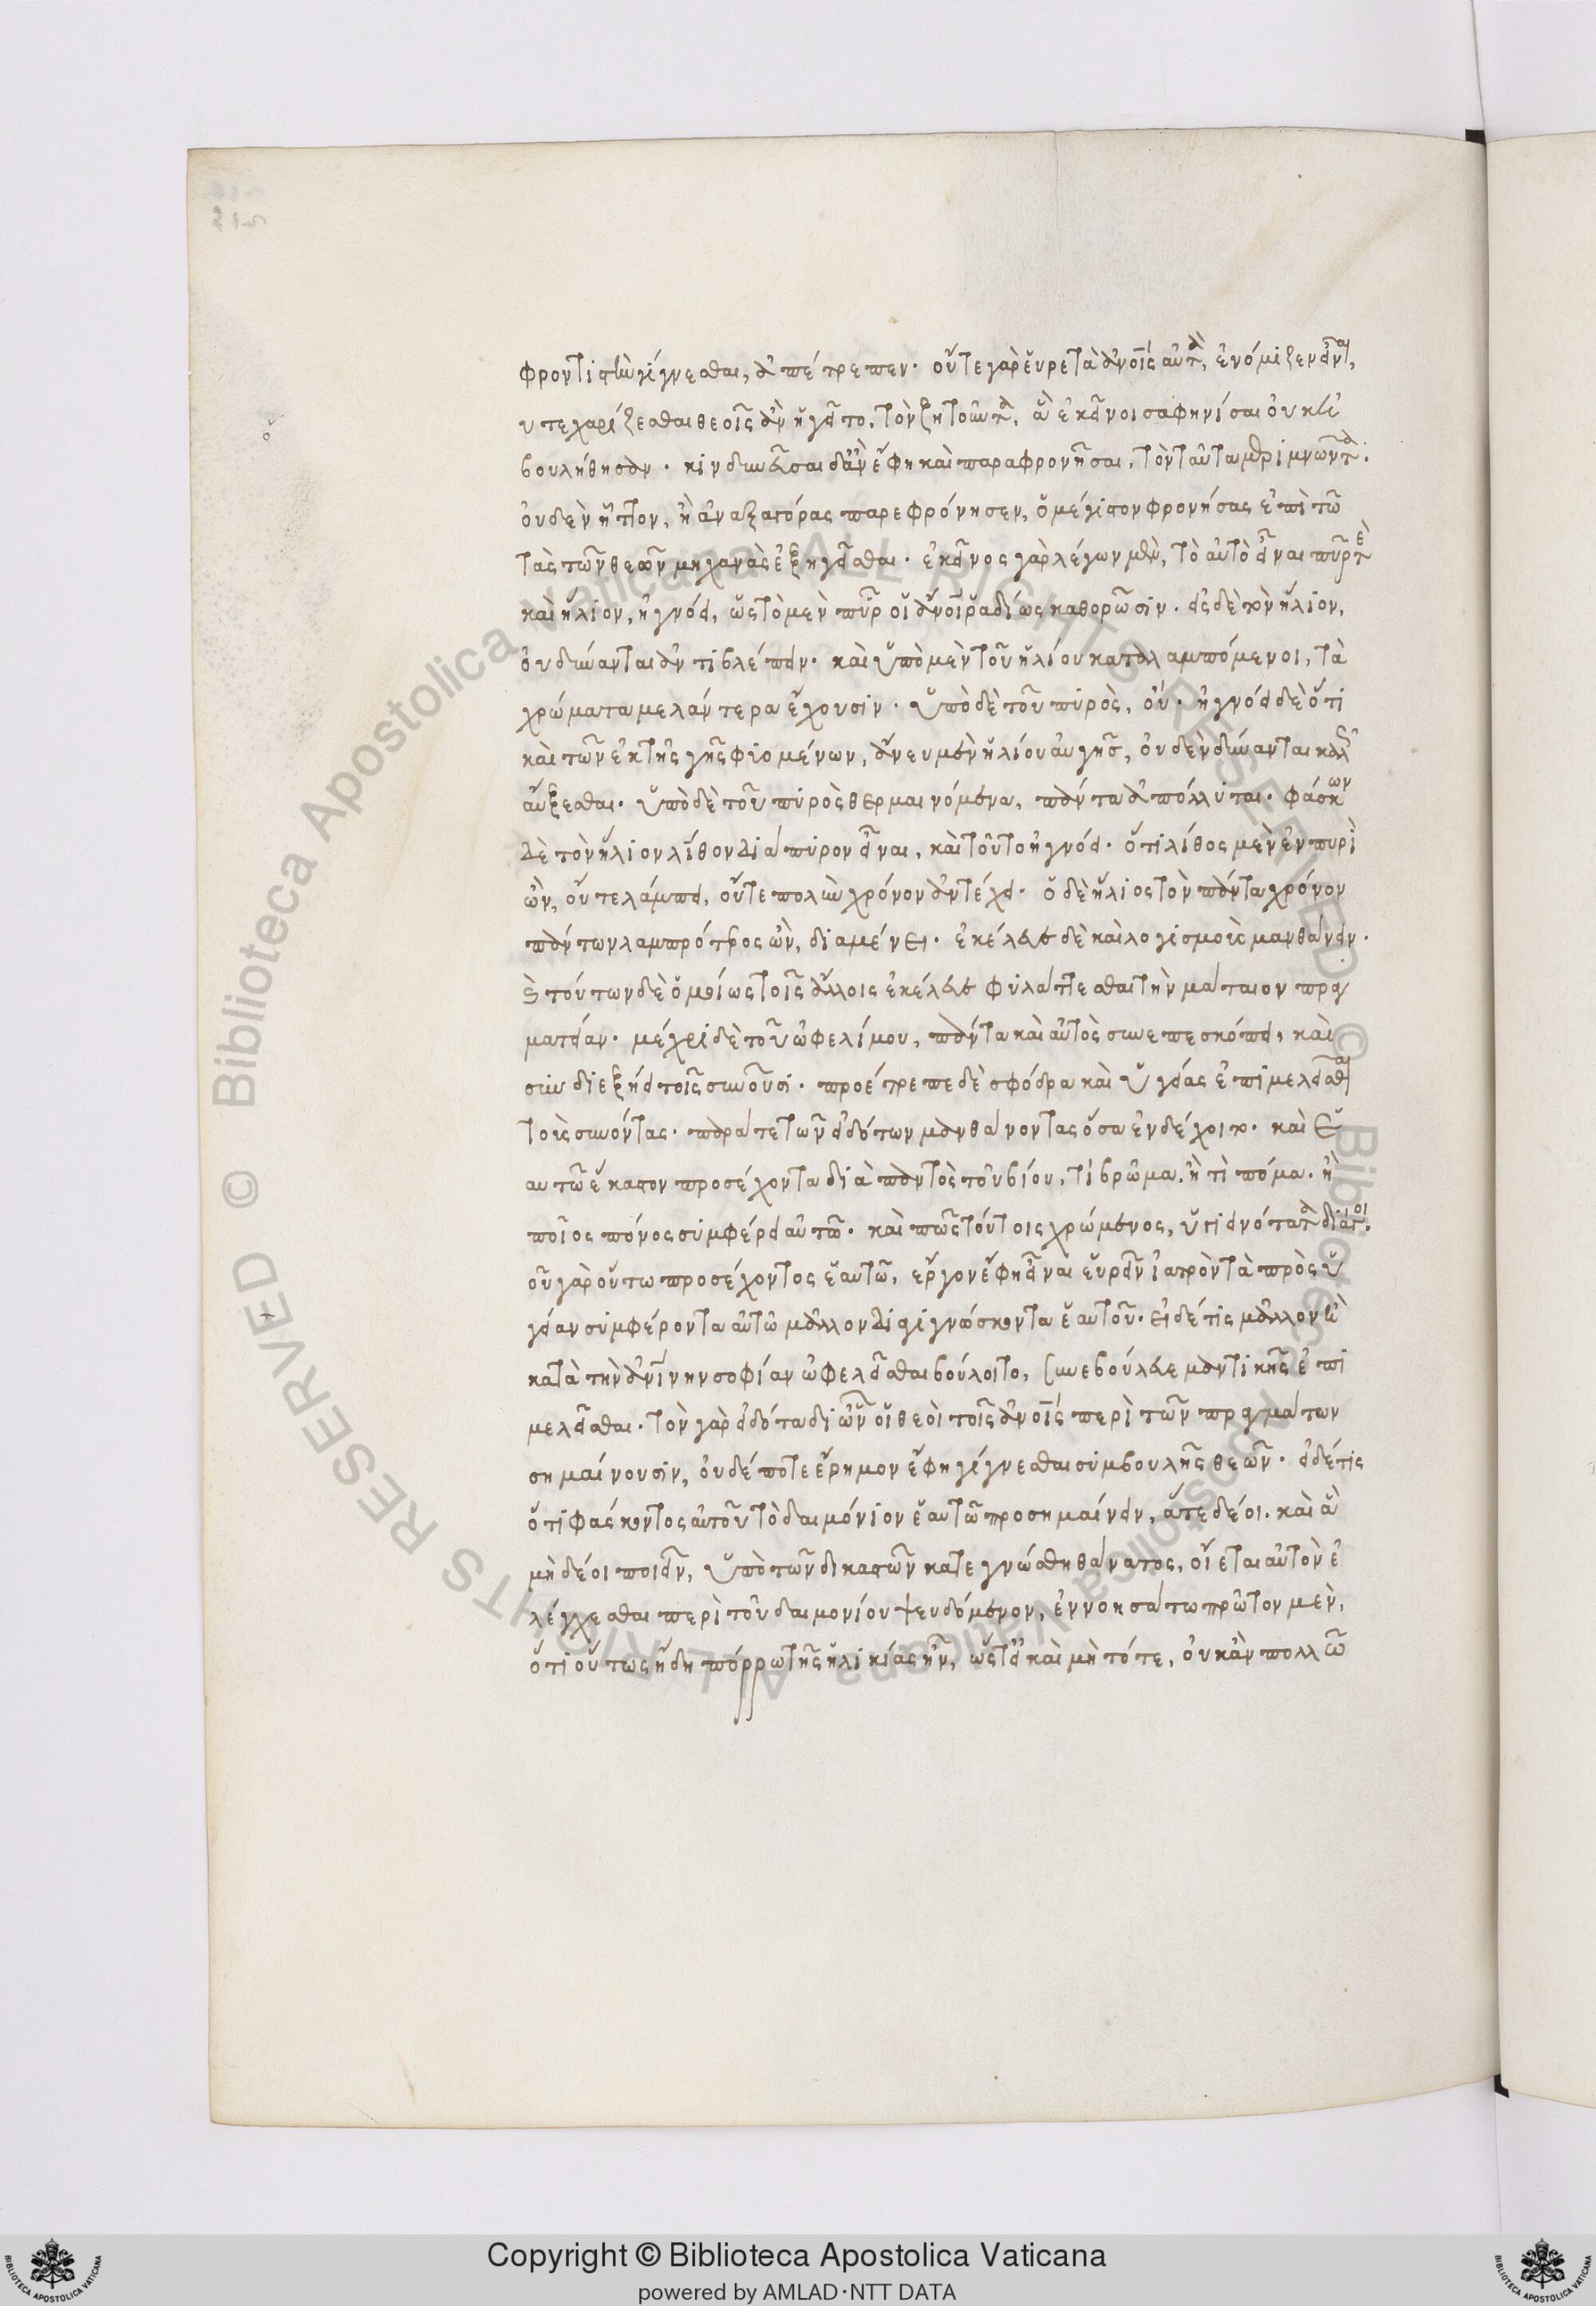 φροντιστὴν γίγνεσθαι, ἀπέτρεπεν· οὔτε γὰρ εὑρετὰ ἀνοῖς αὐτὰ, ἐνόμιζεν εἶναι,
οὔτε χαρίζεσθαι θεοῖς ἂν ἡγεῖτο, τὸν ζητοῦντα, ἃ ἐκεῖνοι σαφηνίσαι οὐκ ἐ
βουλήθησαν· κινδυνεῦσαι δ' ἂν ἔφη καὶ παραφρονῆσαι, τὸν ταῦτα μεριμνῶντα·
οὐδὲν ἧττον, ἢ ἀναξαγόρας παρεφρόνησεν, ὁ μέγιστον φρονήσας ἐπὶ τῶ
τὰς τῶν θεῶν μηχανὰς ἐξηγεῖσθαι· ἐκεῖνος γὰρ λέγων μὲν, τὸ αὐτὸ εἶναι πῦρ τὲ
καὶ ἥλιον, ἠγνόει, ὡς τὸ μὲν πῦρ οἱ ἀνοι ῥαδίως καθορῶσιν· εἰς δὲ τὸν ἥλιον,
οὐ δύνανται ἀντιβλέπειν· καὶ ὑπὸ μὲν τοῦ ἡλίου καταλαμπόμενοι, τὰ
χρώματα μελάντερα ἔχουσιν· ὑπὸ δὲ τοῦ πυρὸς, οὔ· ἠγνόει δὲ ὅτι
καὶ τῶν ἐκ τῆς γῆς φυομένων, ἄνευ μὲν ἡλίου αὐγῆς, οὐδὲν δύναται καλῶς
αὔξεσθαι· ὑπὸ δὲ τοῦ πυρὸς θερμαινόμενα, πάντα ἀπόλλυται· φάσκων
δὲ τὸν ἥλιον λίθον διάπυρον εἶναι, καὶ τοῦτο ἠγνόει· ὅτι λίθος μὲν ἐν πυρὶ
ὢν, οὔτε λάμπει, οὔτε πολὺν χρόνον ἀντέχει· ὁ δὲ ἥλιος τὸν πάντα χρόνον
πάντων λαμπρότατος ὢν, διαμένει· ἐκέλευε δὲ καὶ λογισμοὺς μανθάνειν·
καὶ τούτων δὲ ὁμοίως τοῖς ἄλλοις ἐκέλευε φυλάττεσθαι τὴν μάταιον πραγ
ματείαν· μέχρι δὲ τοῦ ὠφελίμου, πάντα καὶ αὐτὸς συνεπεσκόπει, καὶ
συνδιεξήει τοῖς συνοῦσι· προέτρεπε δὲ σφόδρα καὶ ὑγείας ἐπιμελεῖσθαι
τοὺς συνόντας· παρά τε τῶν εἰδότων μανθάνοντας ὅσα ἐνδέχοιτο· καὶ ἑ
αυτῶ ἕκαστον προσέχοντα διὰ παντὸς τοῦ βίου, τί βρῶμα· ἢ τὶ πόμα· ἢ
ποῖος πόνος συμφέρει αὐτῶ· καὶ πῶς τούτοις χρώμενος, ὑγιεινότατα διάγοι·
οὐ γὰρ οὕτω προσέχοντος ἑαυτῶ, ἔργον ἔφη εἶναι εὑρεῖν ἰατρὸν τὰ πρὸς ὑ
γείαν συμφέροντα αὐτῶ μᾶλλον διαγιγνώσκοντα ἑαυτοῦ· εἰ δέ τις μᾶλλον ἢ
κατὰ τὴν ἀνίνην σοφίαν ὠφελεῖσθαι βούλοιτο, συνεβούλευε μαντικῆς ἐπι
μελεῖσθαι· τὸν γὰρ εἰδότα δι ὧν οἱ θεοὶ τοῖς ἀνοῖς περὶ τῶν πραγμάτων
σημαίνουσιν, οὐδέποτε ἔρημον ἔφη γίγνεσθαι συμβουλῆς θεῶν· εἰ δέ τις
ὅτι φάσκοντος αὐτοῦ τὸ δαιμόνιον ἑαυτῶ προσημαίνειν, ἅτε δέοι· καὶ ἃ
μὴ δέοι ποιεῖν, ὑπὸ τῶν δικαστῶν κατεγνώσθη θάνατος, οἴεται αὐτὸν ἐ
λέγχεσθαι περὶ τοῦ δαιμονίου ψευδόμενον, ἐννοησάτω πρῶτον μὲν,
ὅτι οὕτως ἤδη πόρρω τῆς ἡλικίας ἦν, ὥστ' εἰ καὶ μὴ τότε, οὐκ ἂν πολλῶ